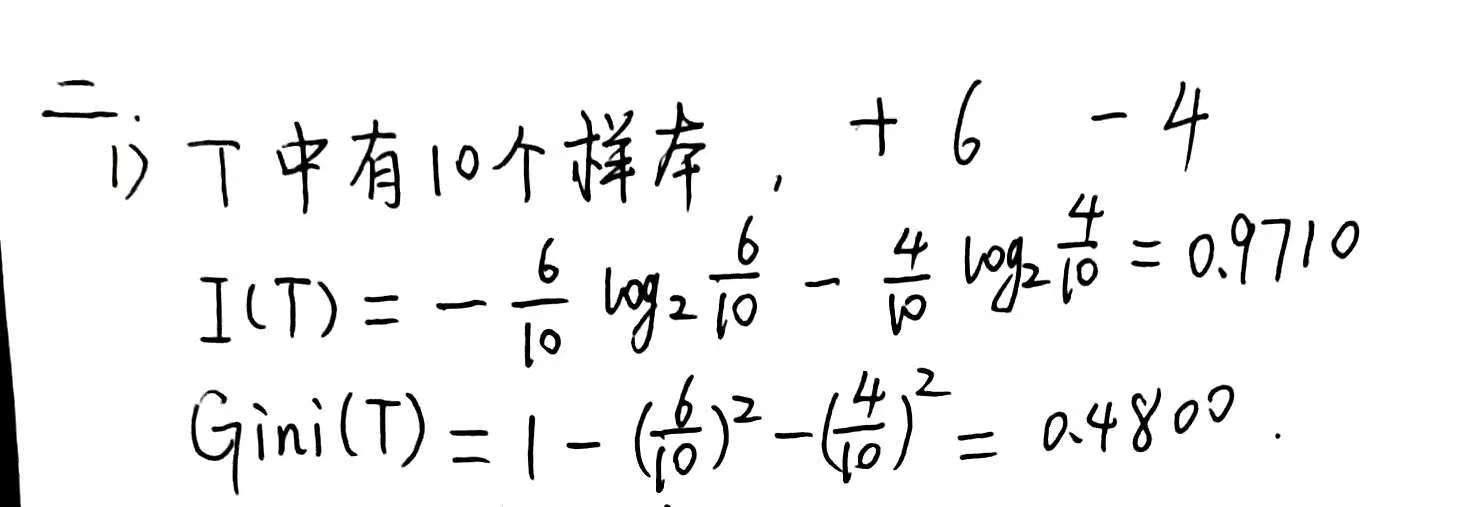 二.
1) T 中有10个样本, + 6 - 4
I(T) = - 6/10 log₂ 6/10 - 4/10 log₂ 4/10 = 0.9710
Gini(T) = 1 - (6/10)² - (4/10)² = 0.4800.